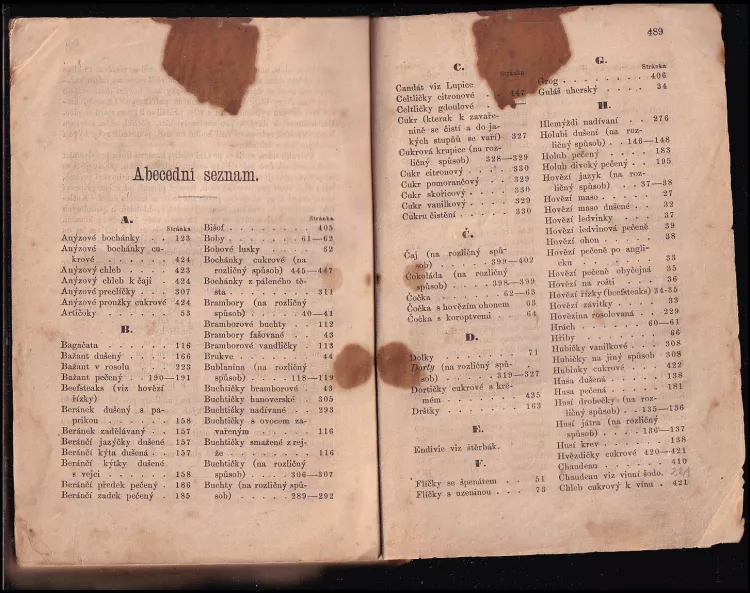 Abecední seznam.
A.
Stránka
Anýzové bochánky . . 123
Anýzové bochánky cu-
krové . . . . . 424
Anýzový chleb . . . 423
Anýzový chleb k čaji . 424
Anýzové preclíčky . . 307
Anýzové proužky cukrové 424
Artičoky . . . . . 53
B.
Bagačata . . . . . 116
Bažant dušený . . . 166
Bažant v rosolu . . . 223
Bažant pečený . . 190—191
Beefsteaks (viz hovězí
řízky)
Beránek dušený s pa-
prikou . . . . . 158
Beránek zadělávaný . . 157
Beránčí jazýčky dušené 157
Beránčí kýta dušená . . 157
Beránčí kýtky dušené
s vejci . . . . . 158
Beránčí předek pečený . 186
Beránčí zadek pečený . 185
Stránka
Bišof . . . . . . 405
Boby . . . . . 61—62
Bobové lusky . . . . 62
Bochánky cukrové (na
rozličný způsob) 445—447
Bochánky z páleného tě-
sta . . . . . . 311
Brambory (na rozličný
způsob) . . . . 40—41
Bramborové buchty . . 112
Brambory fašované . . 43
Bramborové vandličky . 113
Brukve . . . . . . 44
Bublanina (na rozličný
způsob) . . . . 118—119
Buchtičky bramborové . 43
Buchtičky hanoverské . 305
Buchtičky nadívané . . 293
Buchtičky s ovocem za-
vařeným . . . . 116
Buchtičky smažené z rej-
že . . . . . . 116
Buchtičky (na rozličný
způsob) . . . . 306—307
Buchty (na rozličný spů-
sob) . . . . . 289—292
489
C.
Stránka
Candát viz Lupice
Celtličky citronové . . 447
Celtličky gdoulové . .
Cukr (kterak k zavaře-
nině se čistí a do ja-
kých stupňů se vaří) 327
Cukrová krupice (na roz-
ličný spůsob) 328—329
Cukr citronový . . . 330
Cukr pomorančový . . 329
Cukr skořicový . . . 330
Cukr vanilkový . . . 329
Cukru čistění . . . . 330
Č.
Čaj (na rozličný spů-
sob) . . . . 399—402
Čokoláda (na rozličný
způsob) . . . . 398—399
Čočka . . . . . 62—63
Čočka s hovězím ohonem 63
Čočka s koroptvemi . . 64
D.
Dolky . . . . . . 71
Dorty (na rozličný spů-
sob) . . . . . 319—327
Dortičky cukrové s kré-
mem . . . . . 435
Drštky . . . . . . 163
E.
Endivie viz štěrbák.
F.
Flíčky se špenátem . . 51
Flíčky s uzeninou . . . 73
G.
Stránka
Grog . . . . . . 406
Guláš uherský . . . . 34
H.
Hlemýždi nadívaní . . 276
Holubi dušení (na roz-
ličný způsob) . . 146—148
Holub pečený . . . . 183
Holub divoký pečený . . 195
Hovězí jazyk (na roz-
ličný spůsob) . . 37—38
Hovězí maso . . . . 27
Hovězí maso dušené . . 32
Hovězí ledvinky . . . 37
Hovězí ledvinová pečeně 39
Hovězí ohon . . . . 38
Hovězí pečeně po angli-
cku . . . . . . 33
Hovězí pečeně obyčejná 35
Hovězí na roští . . . 36
Hovězí řízky (beefsteaks) 34-35
Hovězí závitky . . . 33
Hovězina rosolovaná . . 229
Hrách . . . . . 60—61
Hřiby . . . . . . 66
Hubičky vanilkové . . 308
Hubičky na jiný spůsob 308
Hubinky cukrové . . . 422
Husa dušená . . . . 138
Husa pečená . . . . 181
Husí drobečky (na roz-
ličný spůsob) . . 135—136
Husí játra (na rozličný
spůsob) . . . . 136—137
Husí krev . . . . . 138
Hvězdičky cukrové 420—421
Chaudeau . . . . . 410
Chaudeau viz vinní šodo. 221
Chleb cukrový k vínu . 421